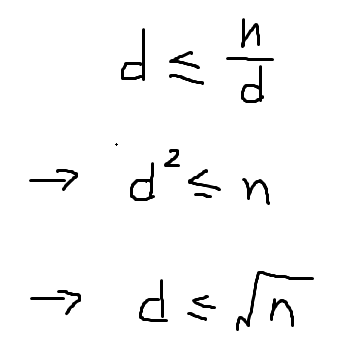 d ≤ n/d
→ d² ≤ n
→ d ≤ √n